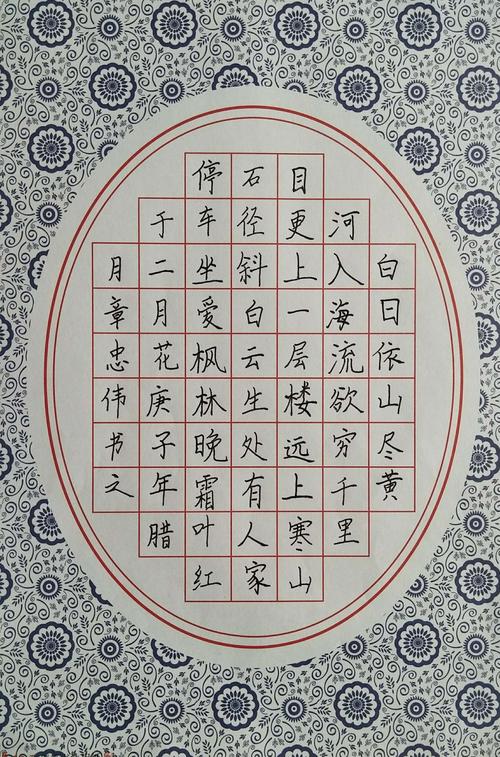 白日依山尽黄
河入海流欲穷千里
目更上一层楼远上寒山
石径斜白云生处有人家
停车坐爱枫林晚霜叶红
于二月花庚子年腊
月章忠伟书之